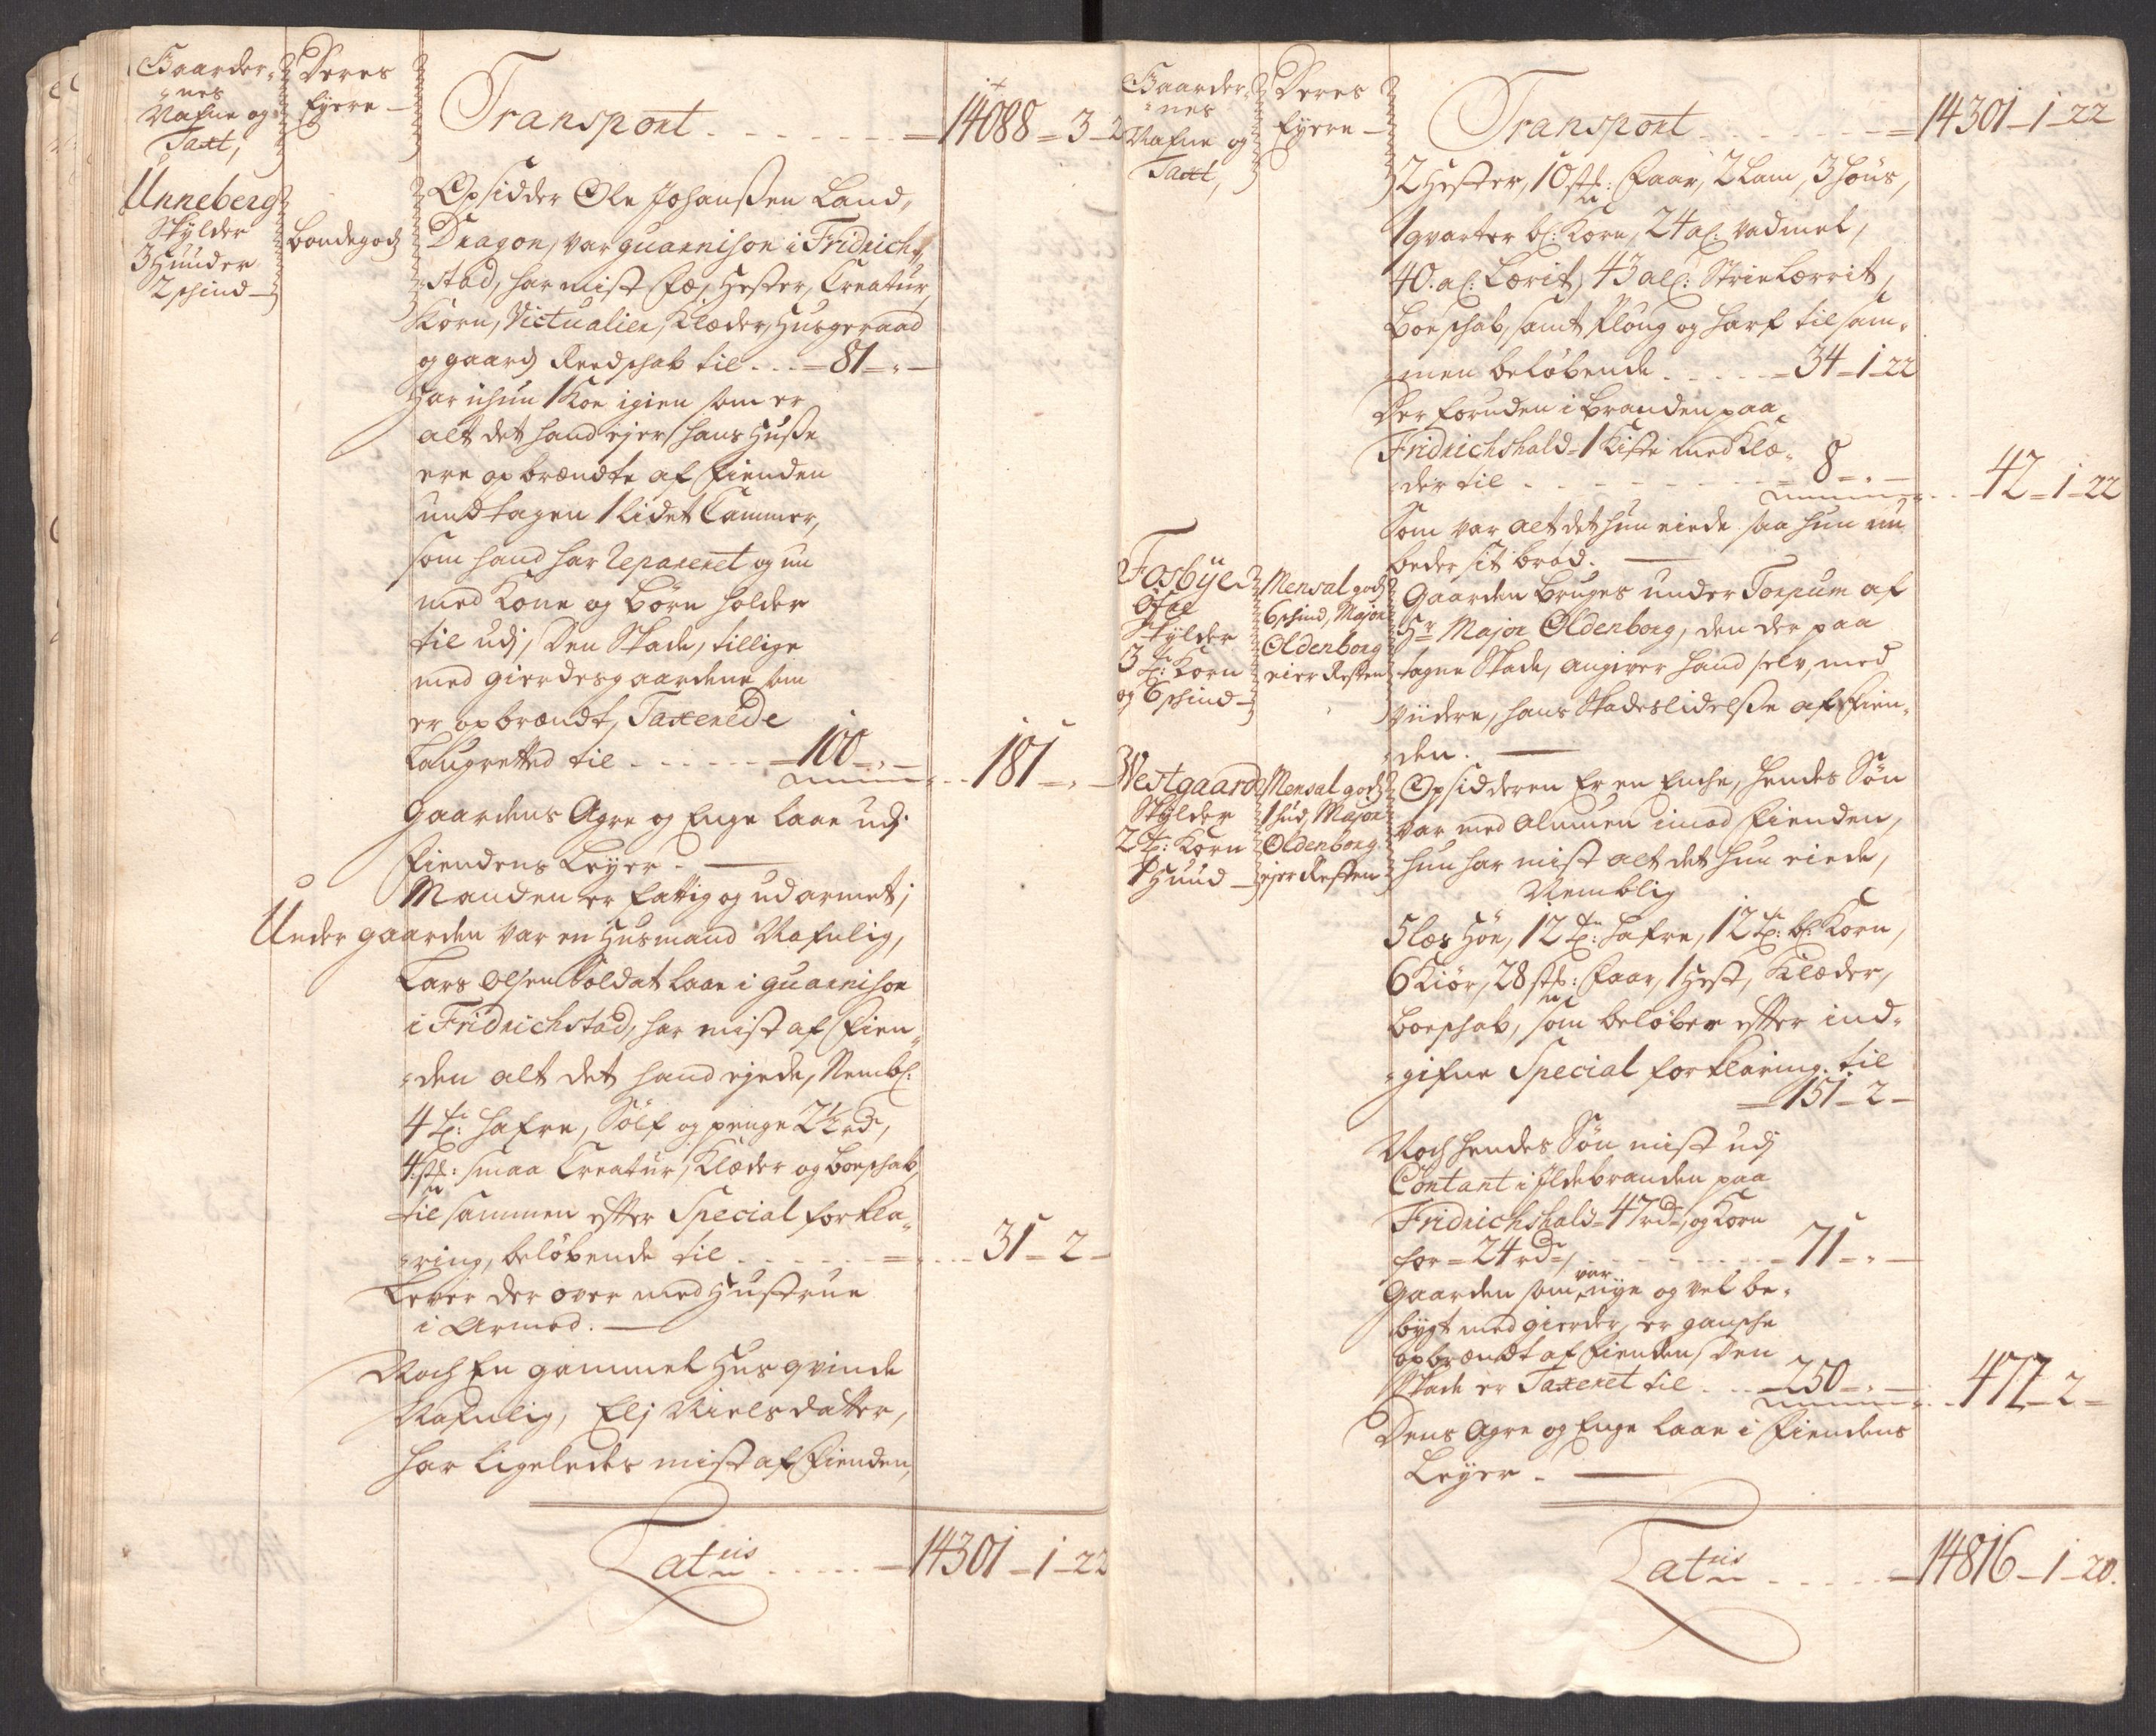 Gaarder-
nes
Nafne og
Taxt,
Deres
Eyere
Transport - - - - - - = 14088 = 3 - 2
Unneberg
Skylder
3 Huuder
2 schind -
bondegods
Opsidder Ole Johanßen Land,
Dragon, var guarnison i Fridrich-
stad, har mist Fæ, Hester, Creatur,
Korn, Victualier, Klæder, Husgeraad
og gaards Reedschab til - - = 81 - " -
Har ichun 1 Koe igien som er
alt det hand ejer, hans Huße
ere opbrændte af Fienden
undtagen 1 lidet Cammer,
som hand har Repareret og nu
med Kone og Børn holder
til udj, Den Skade, tillige
med gierdesgaardene, som
er opbrændt, Taxerede
Laugretted til - - - - - = 100 - " -
- - 181 - " -
Gaardens Agre og Enge laae udj
Fiendens Leyer. —
Manden er fattig og udarmet;
Under gaarden var en Husmand Nafnlig,
Lars Olsen Soldat laae i guarnison
i Fridrichstad, har mist af Fien-
-den alt det hand ejede, Nembl:
4 tr: Hafre, Sølf og penge 2½ rd,
4 st: smaa Creatur, Klæder og boeschab,
tilsammen efter Special forkla-
-ring, beløbende til - - - - - = - - - 31 = 2 -
Lever der over med Hustrue
i Armod. —
Noch En gammel Husqvinde
Nafnlig, Elj Nielsdatter,
har ligeledes mist af Fienden,
Latuis - - - - - = 14301 - 1 - 22
Gaarder-
nes
Nafne og
Taxt,
Deres
Eyere
Transport - - - - - - = 14301 - 1 - 22
2 Hester, 10 st: Faar, 2 Lam, 3 Høns,
1 qvarter bl: Korn, 24 al: vadmel,
40. al: Lærit, 43 all: Strie Lærrit,
Boeschab, samt Ploug og Harf tilsam-
-men beløbende - - - - = 34 - 1 - 22
Der foruden i branden paa
Fridrichshald = 1 Kiste med Klæ-
-der til - - - - - - - = 8 - " -
- - - 42 = 1 - 22
Som var alt det hun eiede saa hun nu
beder sit brød. —
Fosbye
Øfre
Skylder
3 tr: Korn
og 6 schind -
Mensal gods
6 schind, Major
Oldenborg
eier Resten
Gaarden bruges under Torpum af
Hr Major Oldenborg, den der paa
tagne Skade, angiver hand selv, med
viidere, hans Skadeslidelße af Fien-
-den. —
Westgaard
Skylder
2 tr: Korn
1 Huud -
Mensal gods
1 hud, Major
Oldenborg
ejer Resten
Opsidderen Er en Enche, hendes Søn
var med Almuen imod Fienden,
hun har mist alt det hun eiede,
Nemblig
5 læs Høe, 12 tr: Hafre, 12 tr: bl: Korn,
6 Kiør, 28 st: Faar, 1 Hest, Klæder,
boeschab, som beløber efter ind-
-gifne Special forklaring til
= 151 - 2 -
Noch hendes Søn mist udj
Contant i Ildebranden paa
Fridrichshald = 47 rd, og Korn
for = 24 rdr, - - - - - - - = 71 - " -
Gaarden som var nye og vel be-
bygt med gierder, er gansche
opbrændt af Fienden, Den
Skade er Taxeret til - - = 250 - " -
- - 472 - 2 =
Dens Agre og Enge laae i Fiendens
Leyer. —
Latuis - - - - - = 14816 - 1 - 20.